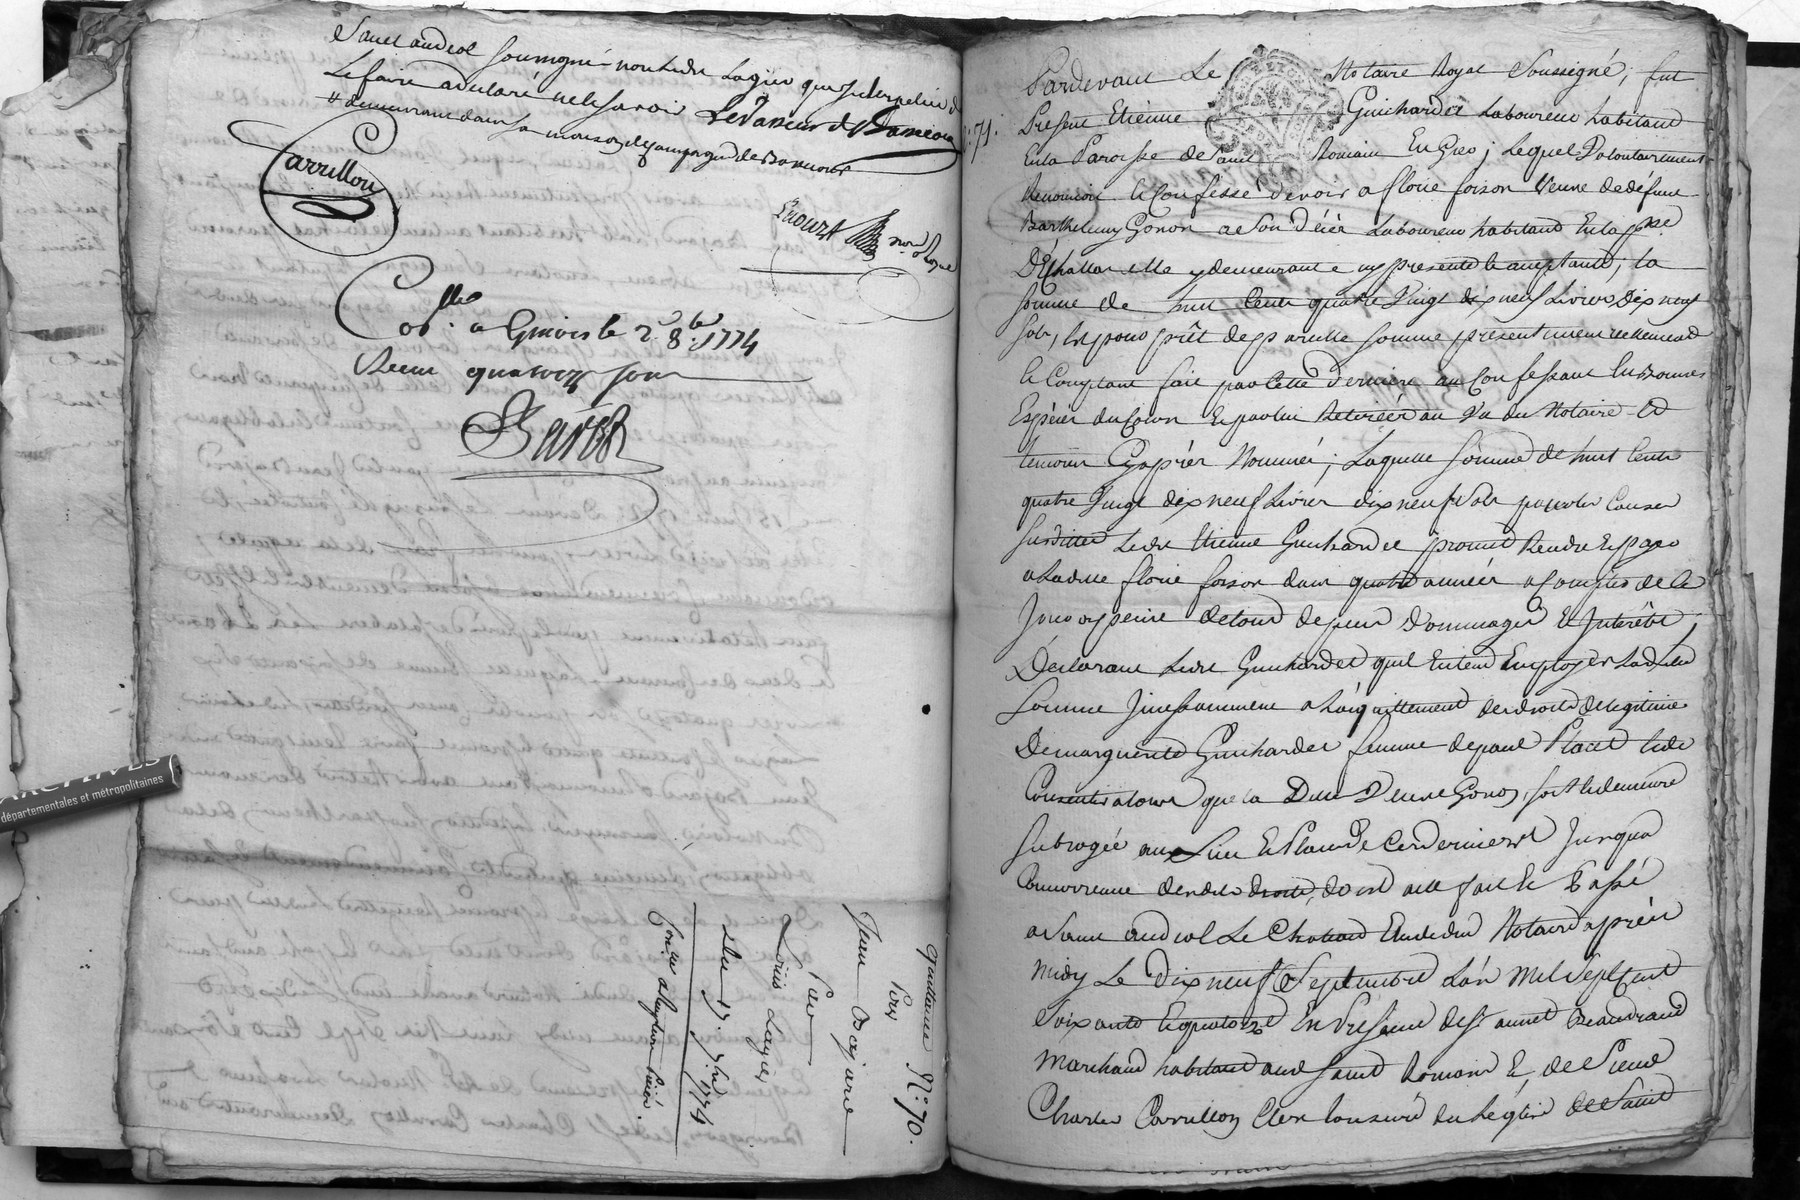 Saint andeol soussigné non ledit Lagier qui interpellé de
le faire a declaré ne le savoir Levasseur de Bameou
# demeurant dans sa maison de campagne de
Carrillon
nore Royal
Collé a Givors le 2e 8bre 1774
Receu quatorze sous
Barot
quittance N.° 70.
Pour
Jean Bajard
Par
Louis Lagier
Du 17. 7bre 1774
ARCHIVES
départementales et métropolitaines
71.
Pardevant Le Notaire Royal Soussigné, fut
Present Etienne Guichardet Laboureur habitant
En la Paroisse de Saint Romain En Gier ; lequel Volontairement
Reconnoit et Confesse devoir a florie foison Veuve de défunt
Barthelemy Gonon a Son Décés Laboureur habitant En la psse
D'Echallas elle y demeurante icy presente et acceptante ; la
somme de huit Cents quatre Vingt dix neuf Livres Dix neuf
sols, Et pour prêt de pareille somme presentement reellement
et Comptant fait par Cette derniere au Confessant En Bonnes
Espèces du Cours Et par lui Retirées au Vu du Notaire Et
temoins Cy après Nommés ; Laquelle Somme de huit Cents
quatre Vingt dix neuf Livres dix neuf Sols pour les Causes
susdittes Ledit Etienne Guichardet promet Rendre Et payer
a Ladite florie foison dans quatre années a Compter de Ce
Jour a peine de tous depens Dommages Et Interêts ;
Declarant Ledit Guichardet qu'il Entend Employer Laditte
Somme Incessamment a L'acquittement des droits de legitime
De marguerite Guichardet femme de paul Placet
Consentir a tout que la Ditte Veuve Gonon soit et demeure
subrogée au Lieu Et Place de Ces derniers Jusqua
Concurrence desdits droits, dont acte fait Et Passé
a Saint andeol Le Chateau Etude dud Notaire après
Midy Le Dix neuf Septembre L'an Mil Sept Cent
Soixante Et quatorze En Presence de Sr annet Beaudrand
Marchand habitant aud Saint Romain Et de Sieur
Charles Carrillon Clerc tonsuré de l'églize de Saint